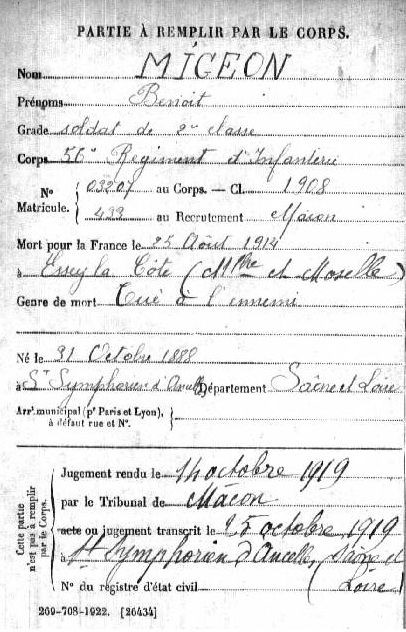 PARTIE À REMPLIR PAR LE CORPS.
Nom MIGEON
Prénoms Benoit
Grade soldat de 2e classe
Corps 56e Régiment d'Infanterie
N° Matricule. { 03207 au Corps. — Cl. 1908
433 au Recrutement Macon
Mort pour la France le 25 Août 1914
à Essey la Côte (Mthe et Moselle)
Genre de mort Tué à l'ennemi
Né le 31 Octobre 1888
à St Symphorien d'Ancelles Département Saône et Loire
Arrt municipal (pr Paris et Lyon), à défaut rue et N°. {
Cette partie n'est pas à remplir par le Corps.
Jugement rendu le 14 octobre 1919
par le Tribunal de Mâcon
acte ou jugement transcrit le 25 octobre 1919
à St Symphorien d'Ancelle, (Saône et
Loire)
N° du registre d'état civil
269-708-1922. [26434]